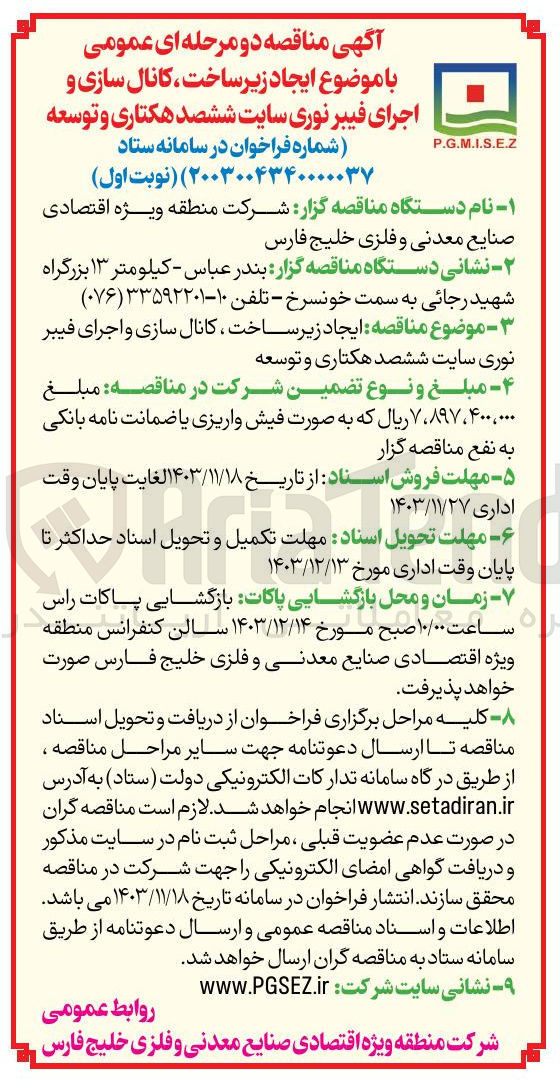 آگهی مناقصه دو مرحله ای عمومی
با موضوع ایجاد زیرساخت، کانال سازی و
اجرای فیبر نوری سایت ششصد هکتاری و توسعه
P.G.M.I.S.E.Z
(شماره فراخوان در سامانه ستاد
۲۰۰۳۰۰۴۳۴۰۰۰۰۰۳۷) (نوبت اول)
۱- نام دستگاه مناقصه گزار: شرکت منطقه ویژه اقتصادی
صنایع معدنی و فلزی خلیج فارس
۲- نشانی دستگاه مناقصه گزار: بندر عباس - کیلومتر ۱۳ بزرگراه
شهید رجائی به سمت خونسرخ - تلفن ۱۰-۳۳۵۹۲۲۰۱ (۰۷۶)
۳- موضوع مناقصه: ایجاد زیرساخت، کانال سازی و اجرای فیبر
نوری سایت ششصد هکتاری و توسعه
۴- مبلغ و نوع تضمین شرکت در مناقصه: مبلغ
۷،۸۹۷،۴۰۰،۰۰۰ ریال که به صورت فیش واریزی یا ضمانت نامه بانکی
به نفع مناقصه گزار
۵- مهلت فروش اسناد: از تاریخ ۱۴۰۳/۱۱/۱۸ لغایت پایان وقت
اداری ۱۴۰۳/۱۱/۲۷
۶- مهلت تحویل اسناد: مهلت تکمیل و تحویل اسناد حداکثر تا
پایان وقت اداری مورخ ۱۴۰۳/۱۲/۱۳
۷- زمان و محل بازگشایی پاکات: بازگشایی پاکات راس
ساعت ۱۰/۰۰ صبح مورخ ۱۴۰۳/۱۲/۱۴ سالن کنفرانس منطقه
ویژه اقتصادی صنایع معدنی و فلزی خلیج فارس صورت
خواهد پذیرفت.
۸- کلیه مراحل برگزاری فراخوان از دریافت و تحویل اسناد
مناقصه تا ارسال دعوتنامه جهت سایر مراحل مناقصه ،
از طریق در گاه سامانه تدارکات الکترونیکی دولت (ستاد) به آدرس
www.setadiran.ir انجام خواهد شد. لازم است مناقصه گران
در صورت عدم عضویت قبلی ، مراحل ثبت نام در سایت مذکور
و دریافت گواهی امضای الکترونیکی را جهت شرکت در مناقصه
محقق سازند. انتشار فراخوان در سامانه تاریخ ۱۴۰۳/۱۱/۱۸ می باشد.
اطلاعات و اسناد مناقصه عمومی و ارسال دعوتنامه از طریق
سامانه ستاد به مناقصه گران ارسال خواهد شد.
۹- نشانی سایت شرکت: www.PGSEZ.ir
روابط عمومی
شرکت منطقه ویژه اقتصادی صنایع معدنی و فلزی خلیج فارس